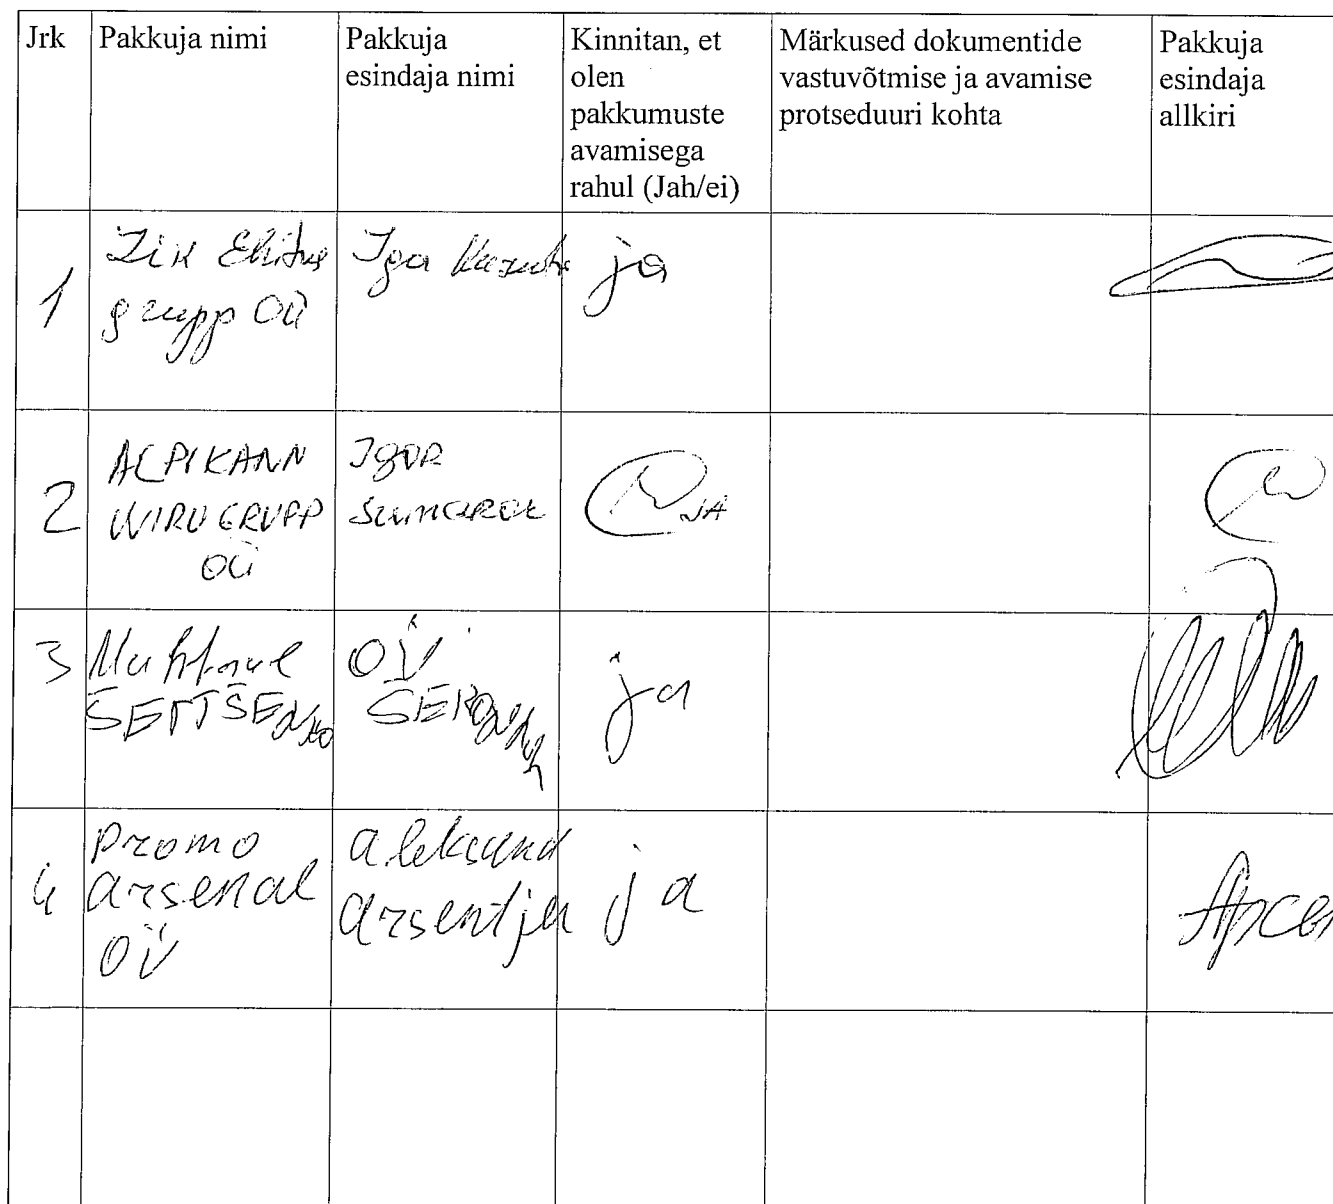 Jrk
Pakkuja nimi
Pakkuja
esindaja nimi
Kinnitan, et
olen
pakkumuste
avamisega
rahul (Jah/ei)
Märkused dokumentide
vastuvõtmise ja avamise
protseduuri kohta
Pakkuja
esindaja
allkiri
1
grupp OÜ
ja
2
WIRU GRUPP
OÜ
IGOR
JA
3
ŠEVTŠENKO
OÜ
ja
4
Promo
arsenal
OÜ
aleksand
arsentjev
ja